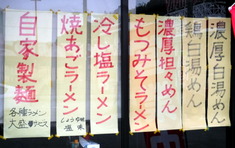 濃厚白湯めん
鶏白湯めん
濃厚担々めん
もつみそラーメン
冷し塩ラーメン
焼あごラーメン
しょうゆ
塩味
自家製麺
各種ラーメン